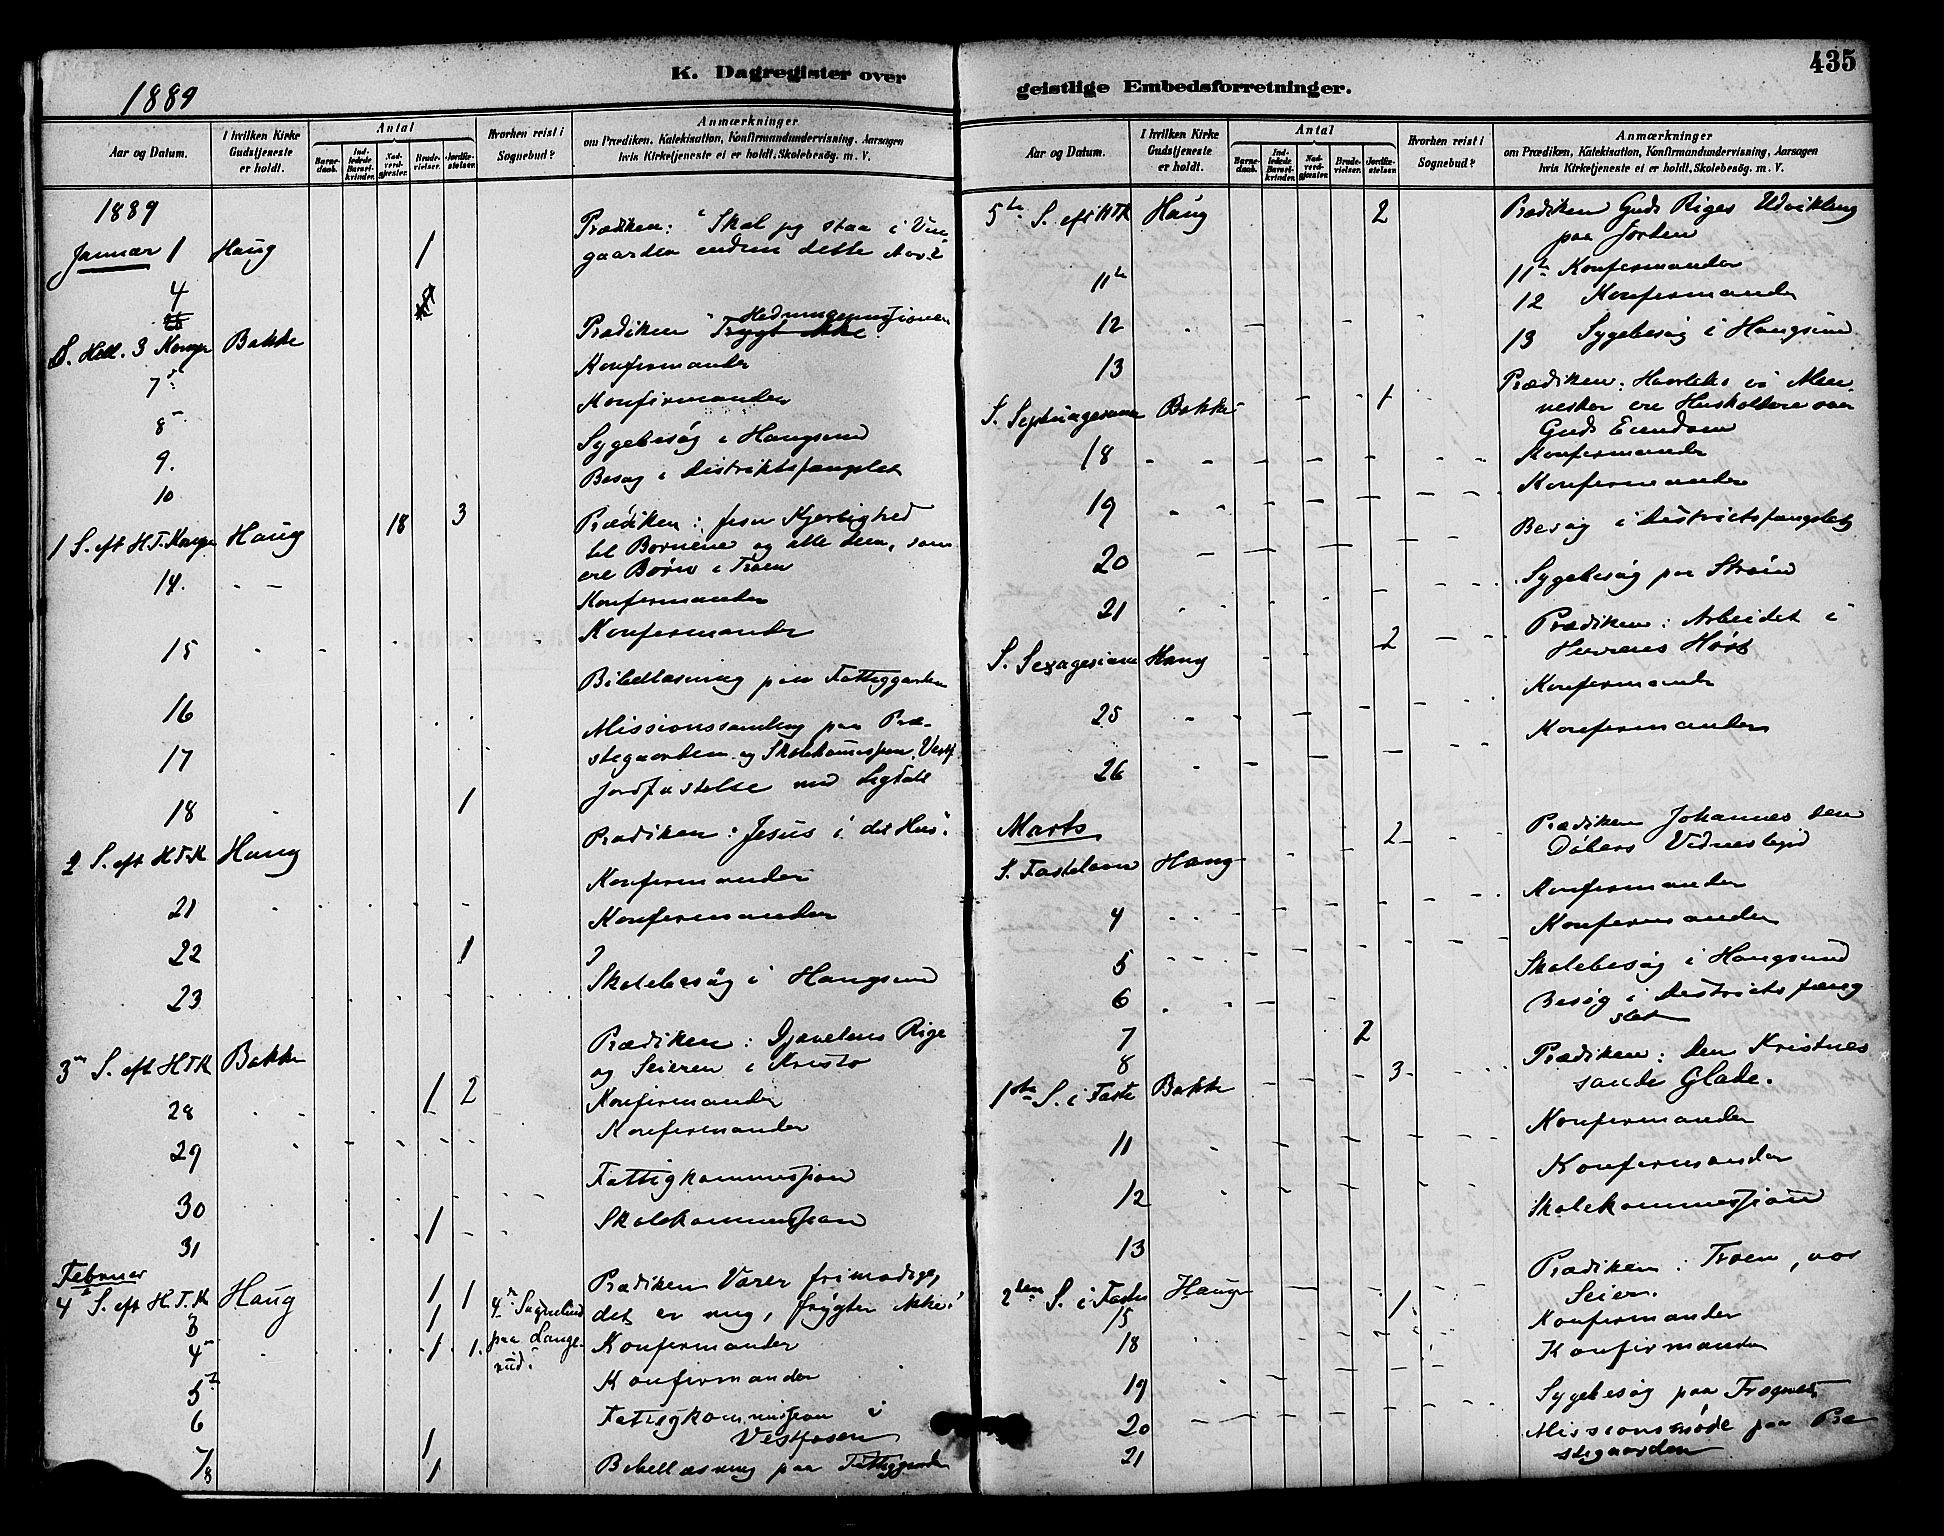 K. Dagregister over
1889
Aar og Datum.
I hvilken Kirke Gudstjeneste er holdt.
Antal
Barnedaab.
Indledede Barselkvinder.
Nadverdgjester.
Brudevielser.
Jordfæstelser.
Hvorhen reist i Sognebud?
Anmærkninger
om Prædiken, Katekisation, Konfirmandundervisning, Aarsagen
hvis Kirketjeneste ei er holdt, Skolebesög. m. V.
1889
Januar 1 Haug 1 Prædiken: "Skal jeg staa i Vin
gaarden endnu dette Aar?
4
S. Hell. 3 Konge Bakke Prædiken Hedningemissionen
7 Konfirmander
8 Konfirmander
9. Sygebesög i Haugsund
10 Besøg i Distriktsfængslet
1 S. eft H.T.Konge Haug 18 3 Prædiken: Jesu Kjerlighed
til Børnene og alle dem, som
ere Børn i Troen
14. Konfirmander
15 Konfirmander
16 Bibellæsning paa Fattiggarden
17 Missionssamling paa Præ-
stegaarden og Skolekommission Vestf
18 1 Jordfæstelse ved
2 S. eft H.T.K Haug Prædiken: Jesus i det Hus
21 Konfirmander
22 1 Konfirmander
23 Skolebesøg i Haugsund
3 S. eft H T K Bakke 1 2 Prædiken: Djævelens Rige
og Seieren i Kristo
28 Konfirmander
29 Konfirmander
30 Fattigkommission
31 1 Skolekommission
Februar
4 S. eft H.T.K Haug 1 1 Prædiken Værer frimodige,
3 1 det er mig, frygter ikke!
4 1 1. paa Lange-
rud. Konfirmander
5 Konfirmander
6 Fattigkommission i
Vestfosen
7/8 1 1 Bibellæsning paa Fattiggarden
geistlige Embedsforretninger.
435
Aar og Datum.
I hvilken Kirke Gudstjeneste er holdt.
Antal
Barnedaab.
Indledede Barselkvinder.
Nadverdgjester.
Brudevielser.
Jordfæstelser.
Hvorhen reist i Sognebud?
Anmærkninger
om Prædiken, Katekisation, Konfirmandundervisning, Aarsagen
hvis Kirketjeneste ei er holdt, Skolebesög. m. V.
5te S. eft H T K Haug 2 Prædiken Guds Riges Udvikling
paa Jorden
11te 11te Konfirmander
12 12 Konfirmander
13 13 Sygebesög i Haugsund
S. Septuagesima Bakke 1 Prædiken: Hvorledes vi Men-
nesker ere Husholdere over
Guds Eiendom
18 Konfirmander
19 Konfirmander
20 Besøg i Districtsfængslet
21 Sygebesög paa Strøm
S. Sexagesima Haug 2 Prædiken: Arbeidet i
Herrens Høst
25 Konfirmander
26 Konfirmander
Marts
S. Fastelavn Haug 2 Prædiken Johannes den
Døbers Vidnesbyrd
4 Konfirmander
5 Konfirmander
6 Skolebesög i Haugsund
7 2 Besög i Districtsfæng
slet
8
1ste S. i Faste Bakke 3 Prædiken: Den Kristnes
sande Glæde.
11 Konfirmander
12 Konfirmander
13 Skolekommission
2den S. i Faste Haug 1 Prædiken: Troen, vor
Seier.
15 Konfirmander
18 Konfirmander
19 Sygebesög paa
20 Missionsmøde paa Præ
21 stegaarden